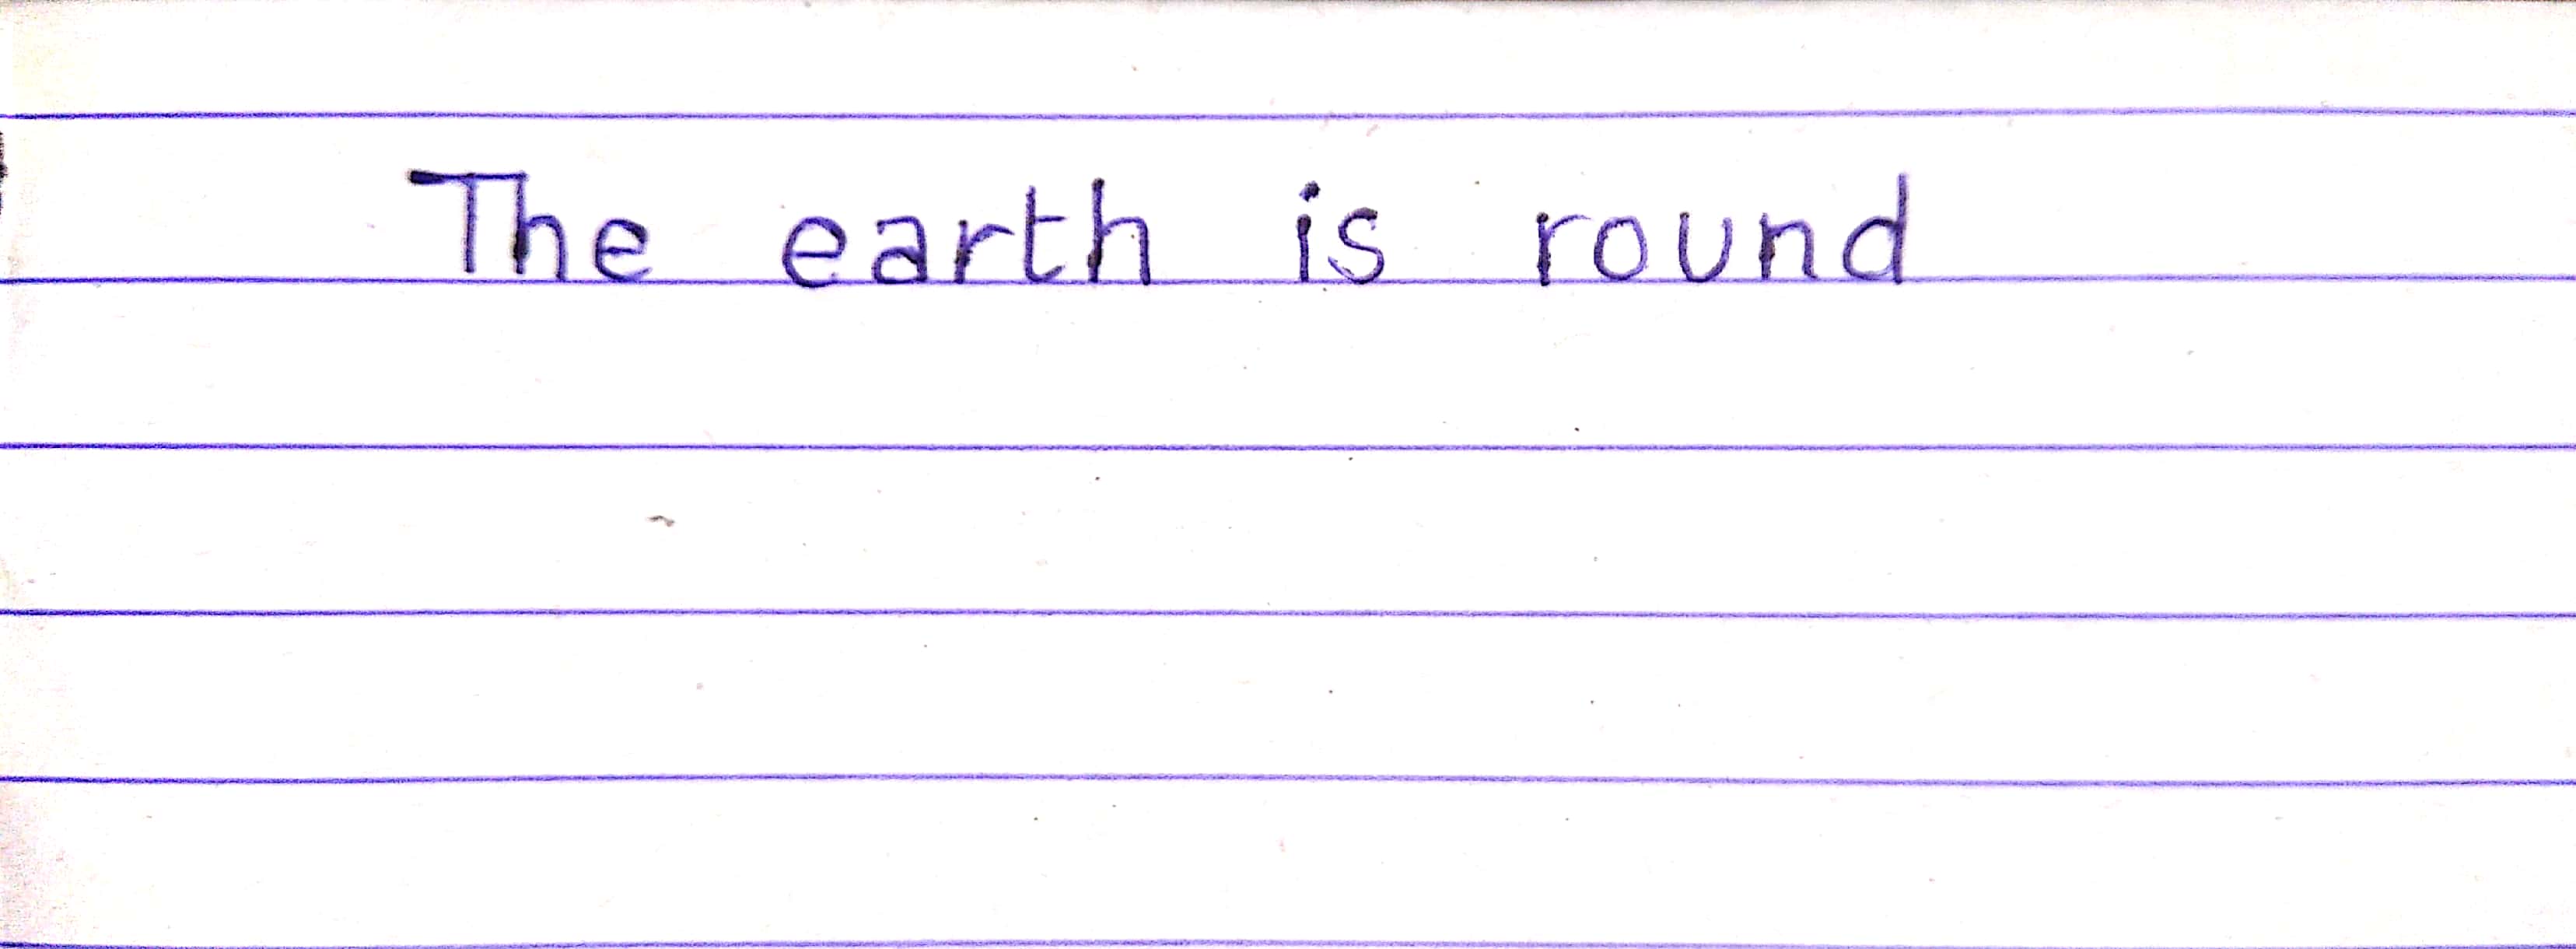 The earth is round